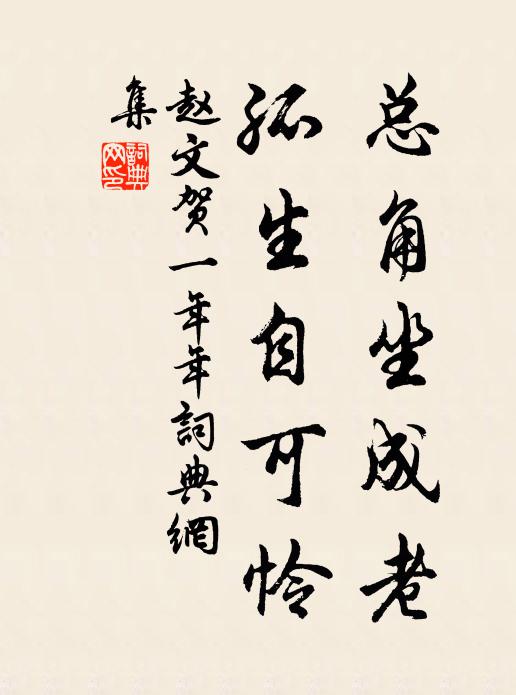 总角坐成老
孤生自可怜
赵文贺一年年詞典網
集
詞典
网印